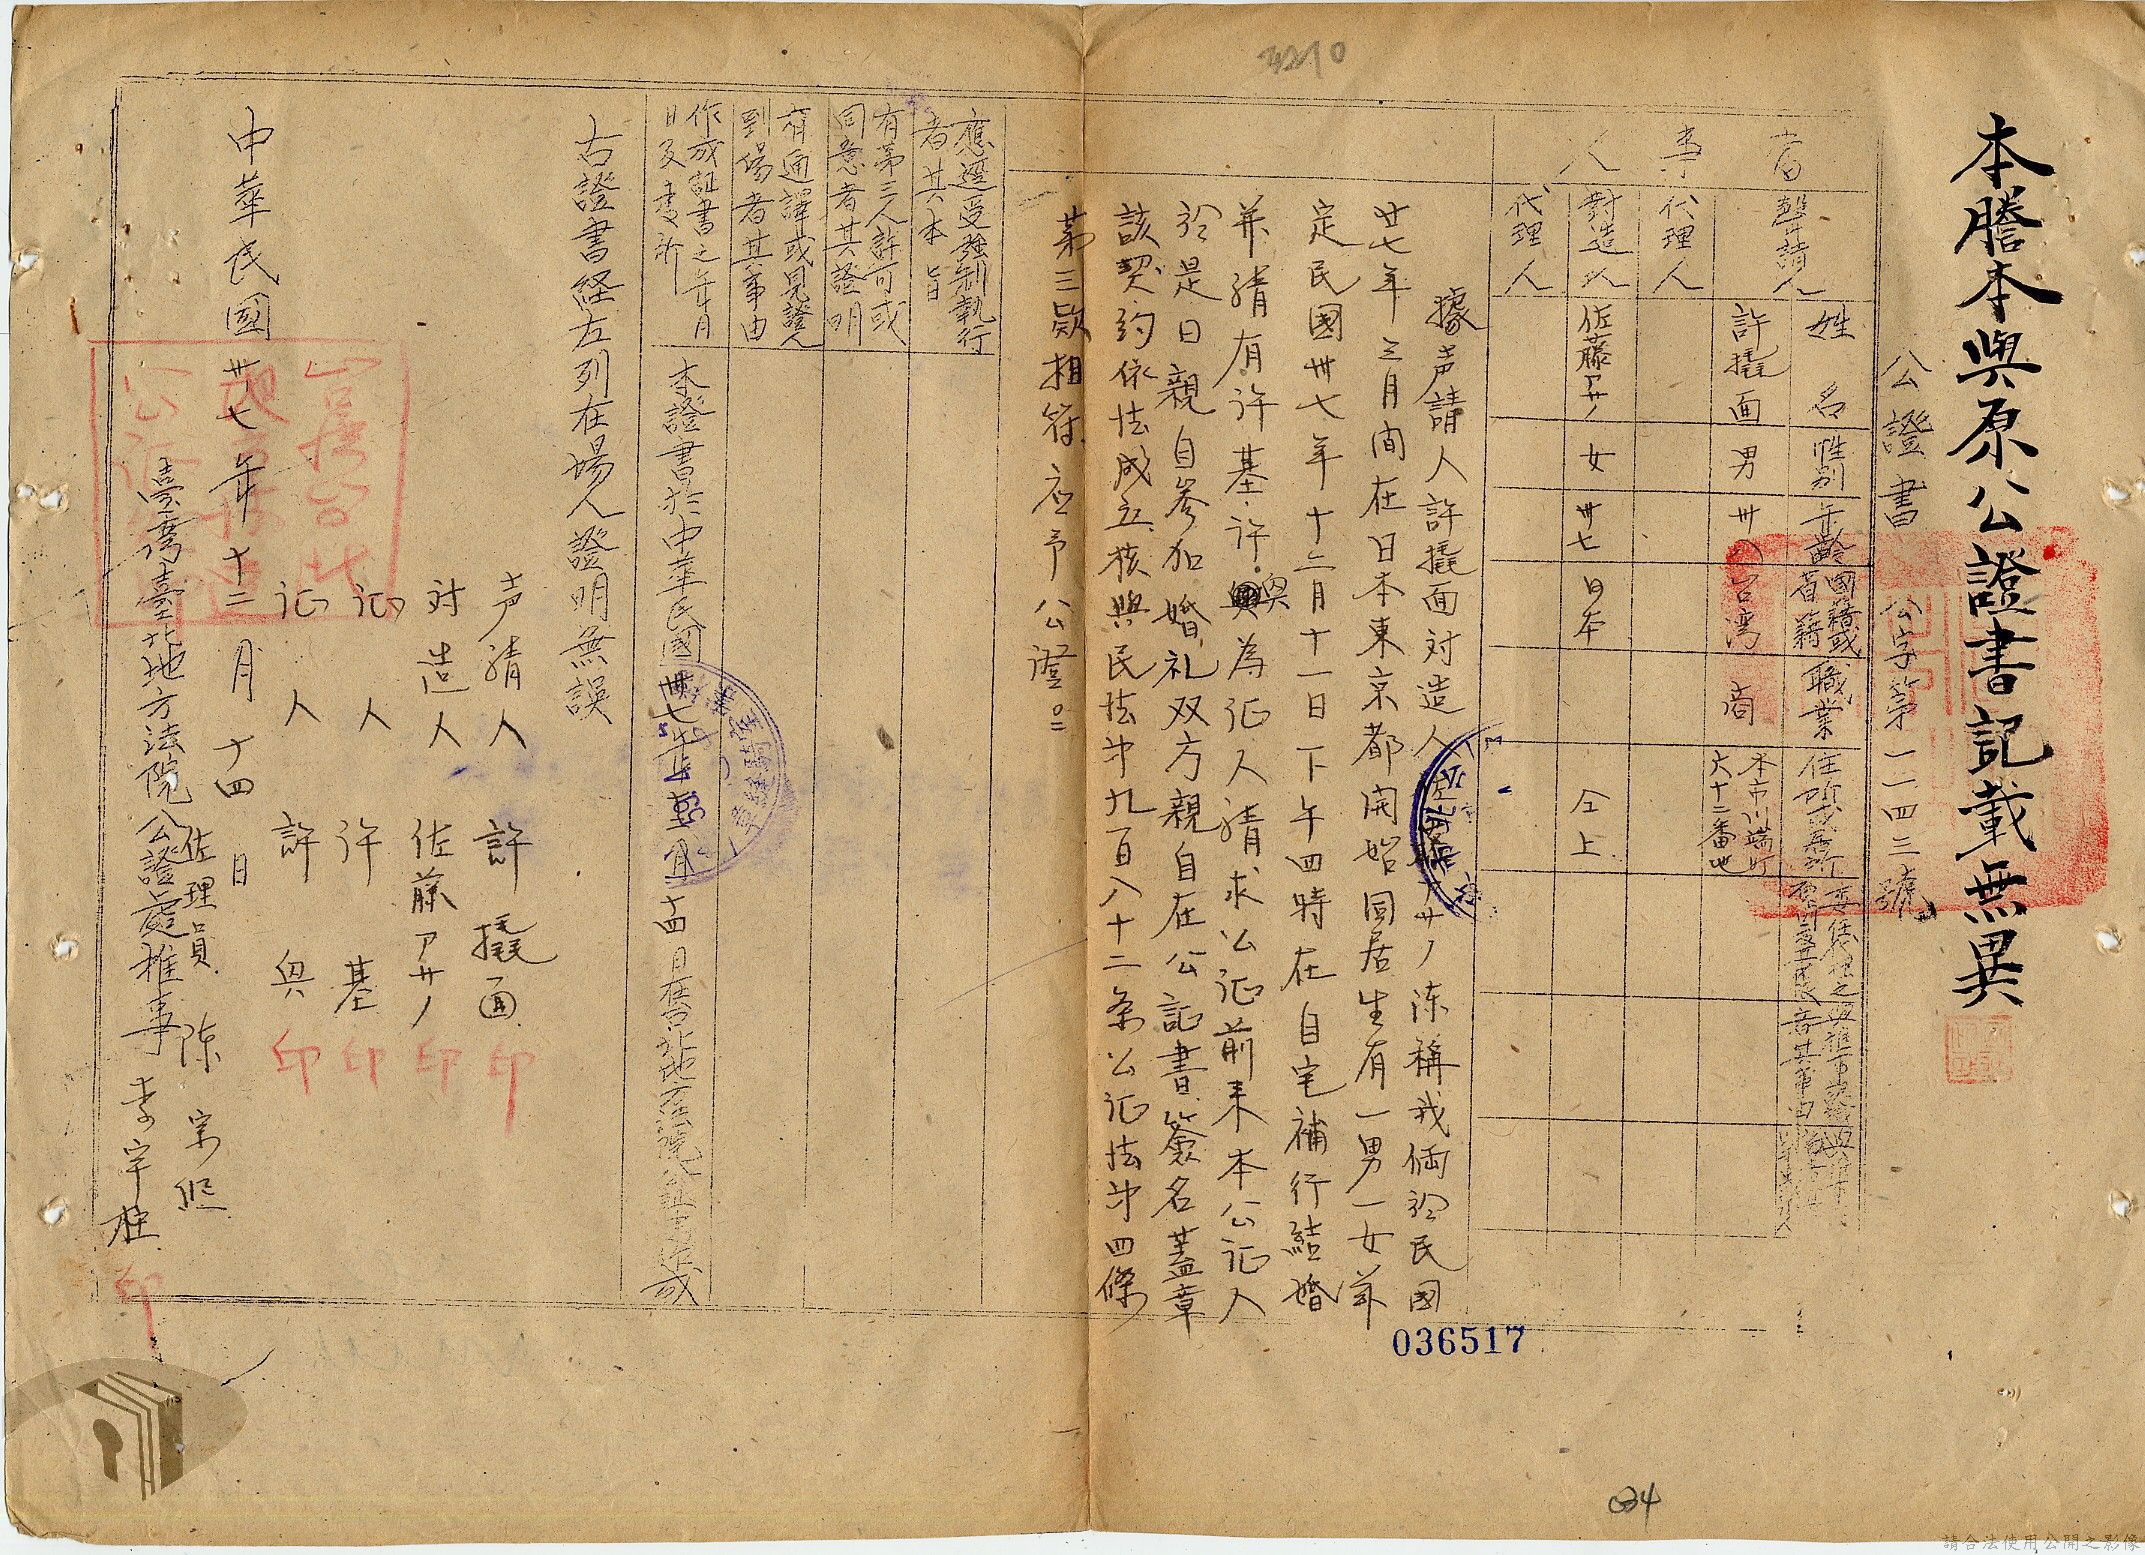 3210
本謄本與原公證書記載無異
公證書 公字第一一四三號
姓名
性別
年齡
國籍或
省籍
職業
住所或居所
聲請人
許撬面
男
台灣
商
本市川端町
六十二番地
代理人
對造人
佐藤アサノ
女
卅七
日本
仝上
代理人
據声請人許撬面対造人佐藤アサノ陳稱我倆於民國
廿七年三月間在日本東京都開始同居生有一男一女茲
定民國卅七年十二月十一日下午四時在自宅補行結婚
并請有許基.許.奥為证人請求公证前来本公证人
於是日親自参加婚礼双方親自在公証書簽名蓋章
該契約依法成立核與民法第九百八十二条公证法第四條
第三欵相符应予公證
應逕受強制執行
者其本旨
有第三人許可或
同意者其證明
有通譯或見證人
到場者其事由
作成証書之年月
日及處所
本證書於中華民國卅七年十二月十四日在台北地方法院公証處作成
右證書経左列在場人證明無誤
声請人 許撬面 印
対造人 佐藤アサノ 印
证人 許基 印
证人 許奥 印
中華民國卅七年十二月十四日
佐理員 陳宗熙
臺灣臺北地方法院公證處推事 李宇柱 印
036517
請合法使用公開之影像